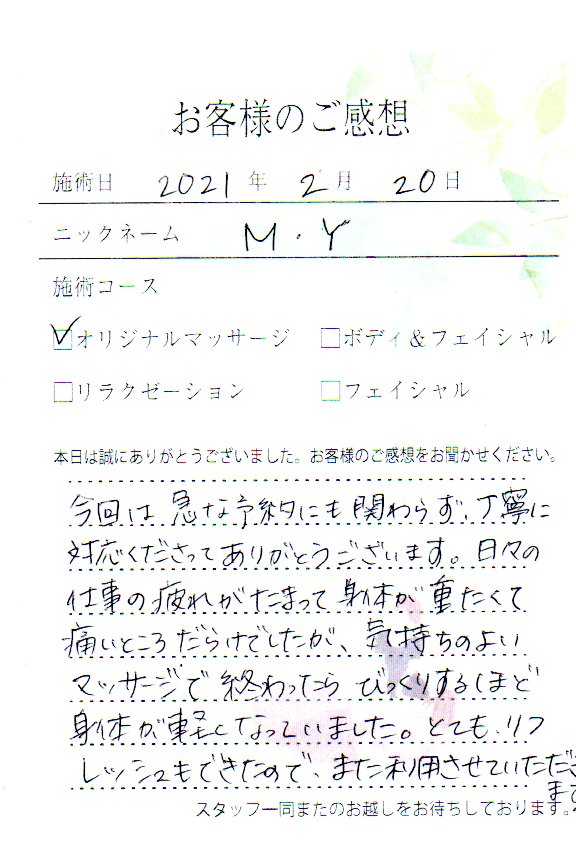 お客様のご感想
施術日 2021年 2月 20日
ニックネーム M・Y
施術コース
☑オリジナルマッサージ □ボディ&フェイシャル
□リラクゼーション □フェイシャル
本日は誠にありがとうございました。お客様のご感想をお聞かせください。
今回は急な予約にも関わらず、丁寧に
対応くださってありがとうございます。日々の
仕事の疲れがたまって身体が重たくて
痛いところだらけでしたが、気持ちのよい
マッサージで終わったらびっくりするほど
身体が軽くなっていました。とても、リフ
レッシュもできたので、また利用させていただき
ます
スタッフ一同またのお越しをお待ちしております。